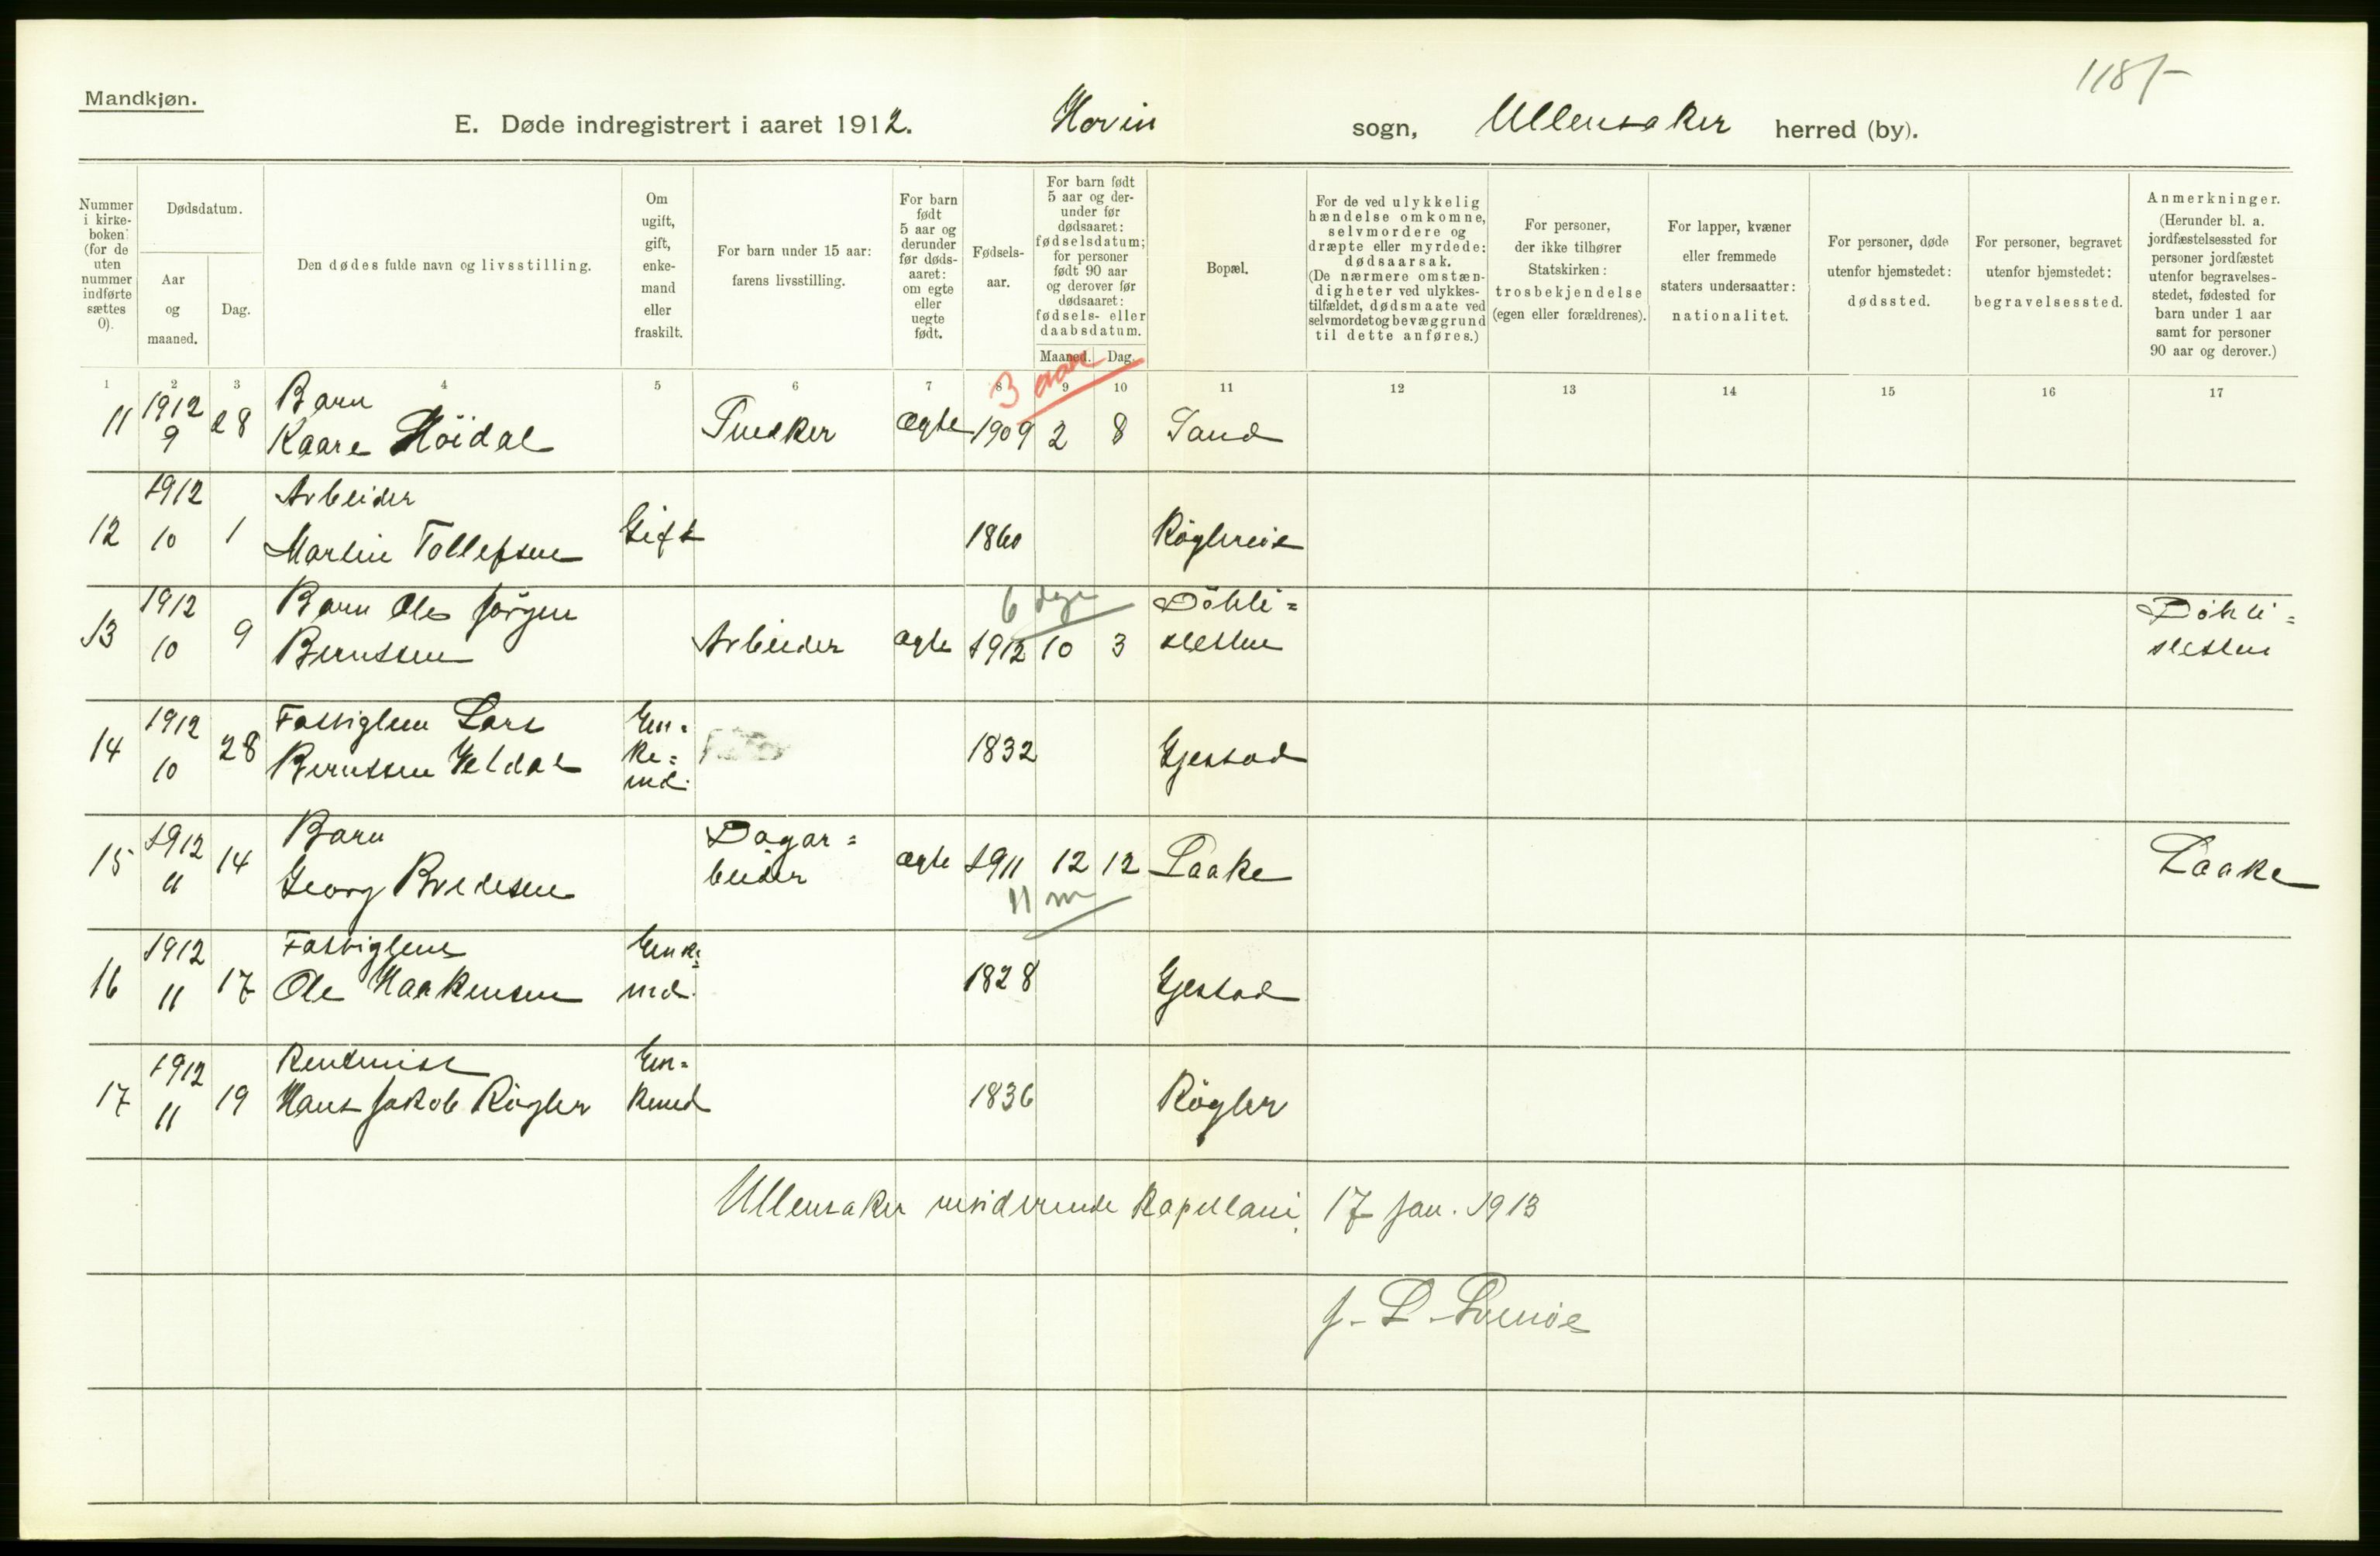 118/-
Mandkjøn.
E. Døde indregistrert i aaret 1912. Hovin sogn, Ullensaker herred (by).
Nummer i kirkeboken: (for de uten nummer indførte sættes 0).
Dødsdatum.
Aar og maaned.
Dag.
Den dødes fulde navn og livsstilling.
Om ugift, gift, enkemand eller fraskilt.
For barn under 15 aar: farens livsstilling.
For barn født 5 aar og derunder før dødsaaret: om egte eller uegte født.
Fødselsaar.
For barn født 5 aar og derunder før dødsaaret: fødselsdatum; for personer født 90 aar og derover før dødsaaret: fødsels- eller daabsdatum.
Maaned. Dag.
Bopæl.
For de ved ulykkelig hændelse omkomne, selvmordere og dræpte eller myrdede: dødsaarsak. (De nærmere omstændigheter ved ulykkestilfældet, dødsmaate ved selvmordet og bevæggrund til dette anføres.)
For personer, der ikke tilhører Statskirken: trosbekjendelse (egen eller forældrenes).
For lapper, kvæner eller fremmede staters undersaatter: nationalitet.
For personer, døde utenfor hjemstedet: dødssted.
For personer, begravet utenfor hjemstedet: begravelsessted.
Anmerkninger. (Herunder bl. a. jordfæstelsessted for personer jordfæstet utenfor begravelsesstedet, fødested for barn under 1 aar samt for personer 90 aar og derover.)
1 2 3 4 5 6 7 8 9 10 11 12 13 14 15 16 17
3 aar
11 1912 9 28 Barn Kaare Høidal Snedker ægte 1909 2 8 Sand
12 1912 10 1 Arbeider Martin Tollefsen Gift 1860 Røglereie
6 dage
13 1912 10 9 Barn Ole Jørgen Berntsen Arbeider ægte 1912 10 3 Döhli=sletten Döhli=sletten
14 1912 10 28 Fattiglem Lars Berntsen Heldal En=ke=md. 1832 Gjestad
15 1912 11 14 Barn Georg Bredesen Dagar=beider ægte 1911 12 12 Laake Laake
11 m
16 1912 11 17 Fattiglem Ole Haakensen Enke=md. 1828 Gjestad
17 1912 11 19 Rentenist Hans Jakob Røgler En=kemd 1836 Røgler
Ullensaker residerende Kapellani, 17 Jan. 1913
J. L.